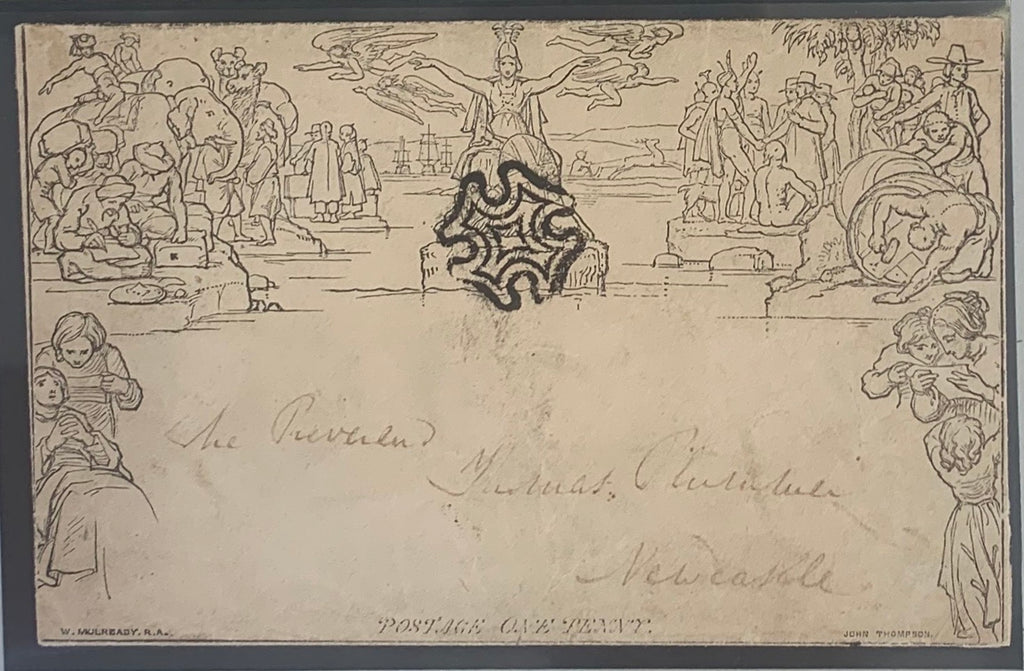 The Reverend
Thomas Plummer
Newcastle
POSTAGE ONE PENNY.
W. MULREADY. R.A.
JOHN THOMPSON.